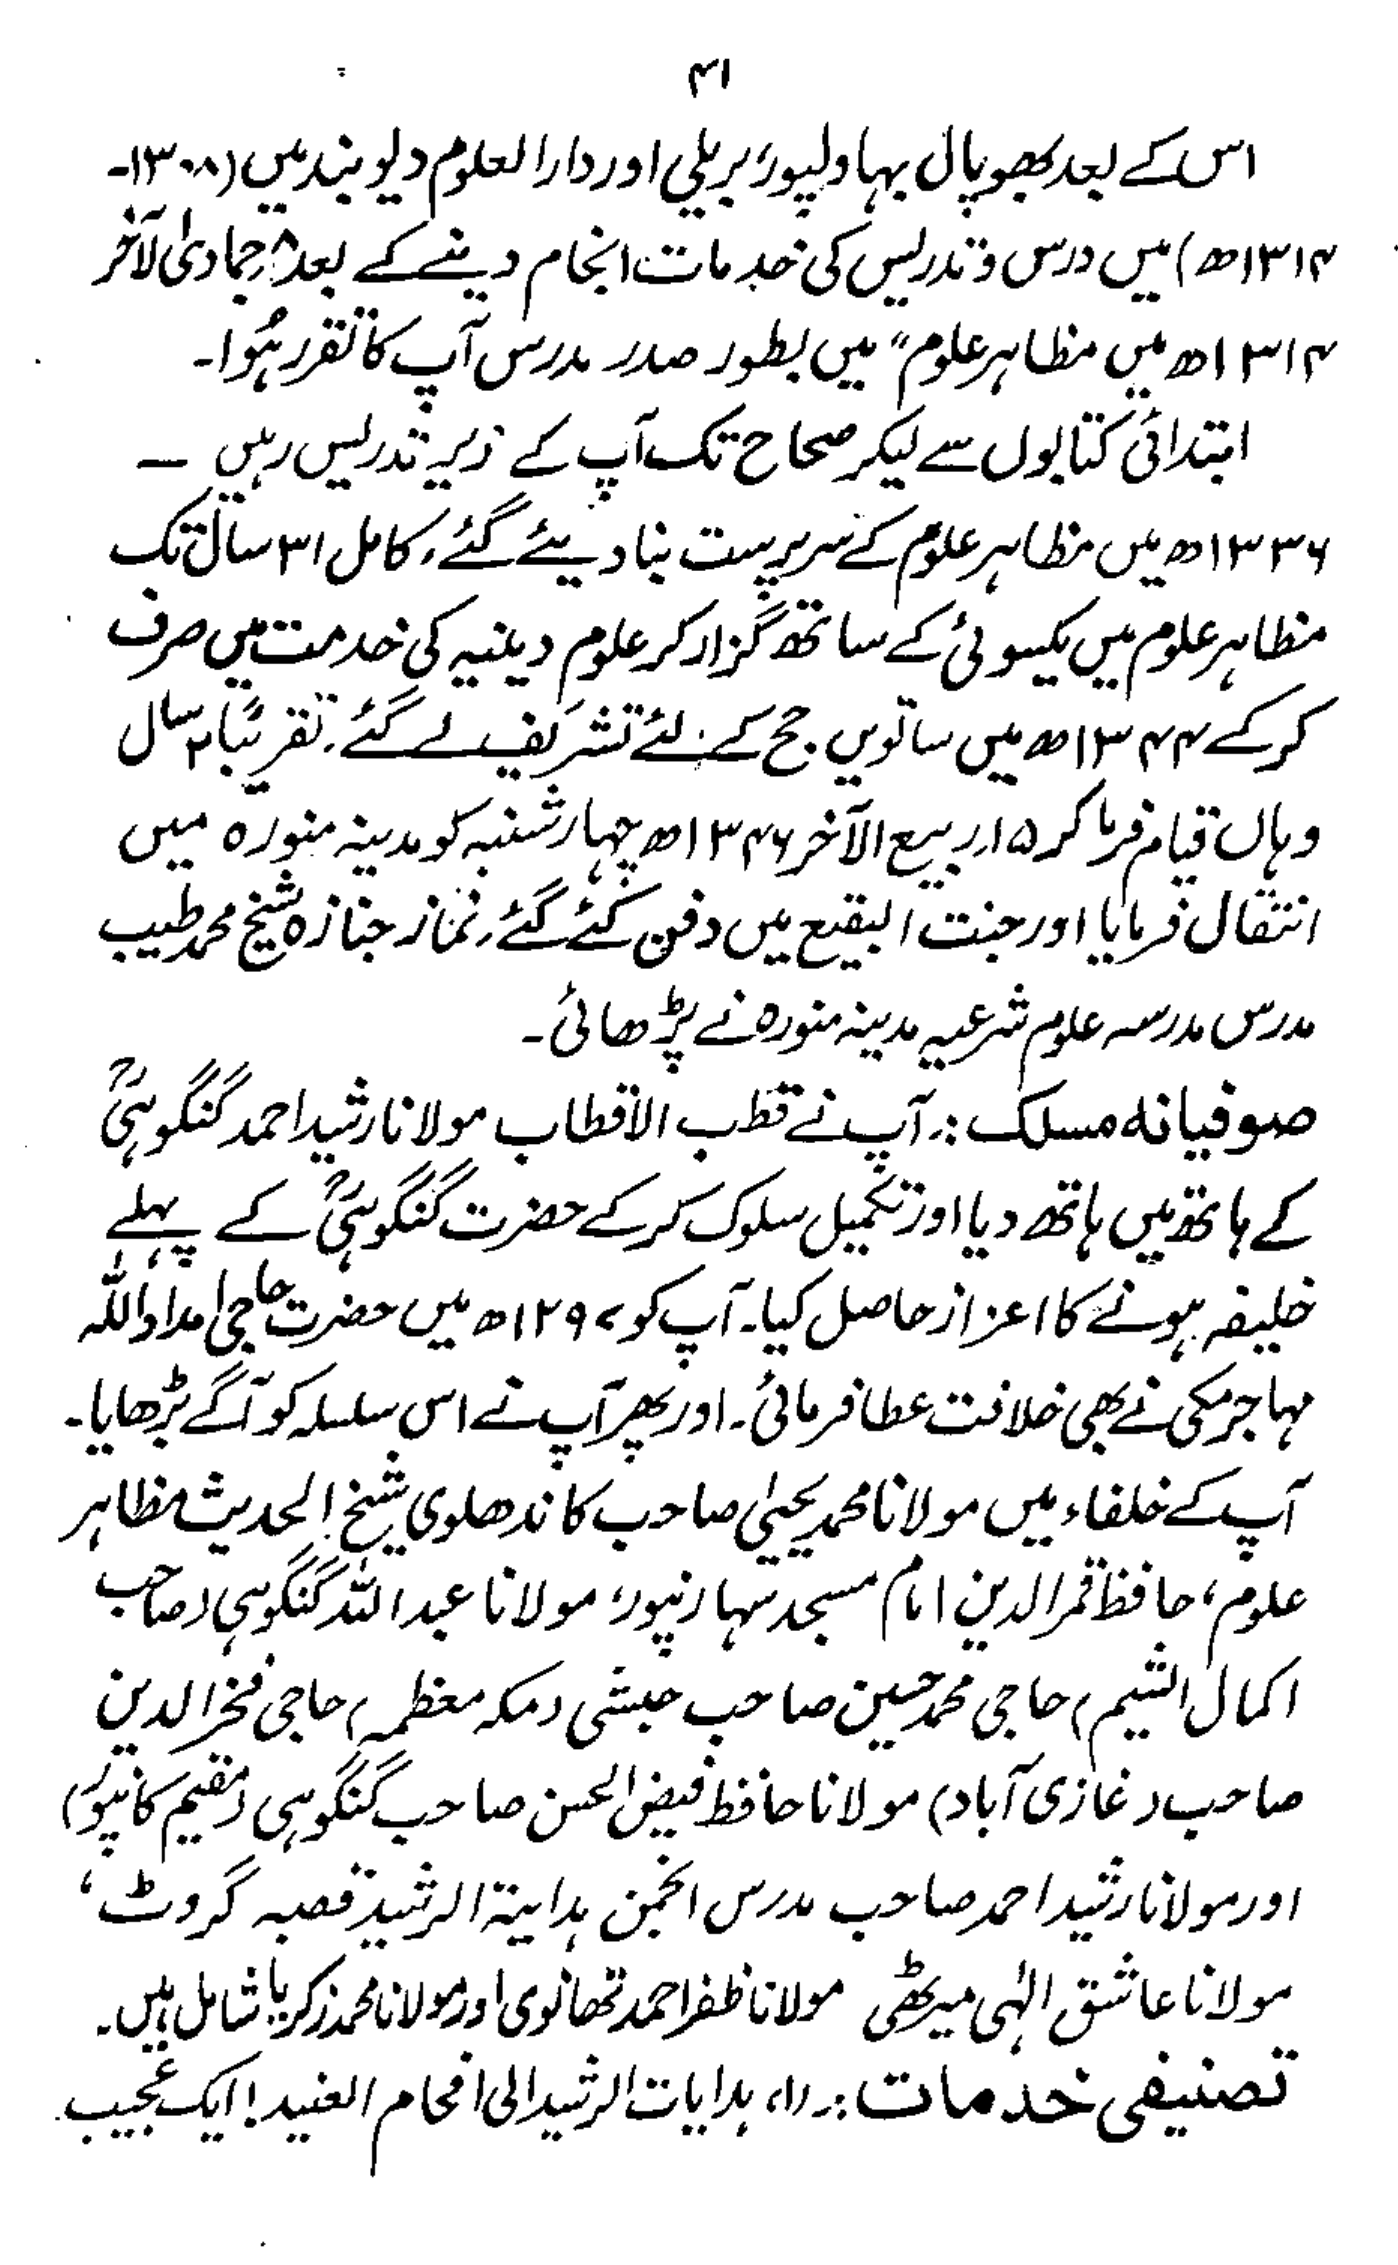 ۴۱
اس کے بعد بھوپال بہاولپور، بریلی اور دارالعلوم دیوبند میں (۱۳۰۸۔
۱۳۱۴ھ) میں درس و تدریس کی خدمات انجام دینے کے بعد ۸ جمادی الآخر
۱۳۱۴ھ میں مظاہر علوم" میں بطور صدر مدرس آپ کا تقرر ہُوا۔
ابتدائی کتابوں سے لیکر صحاح تک آپ کے زیر تدریس رہیں ـ
۱۳۳۶ھ میں مظاہر علوم کے سرپرست بنا دیئے گئے، کامل ۳۱ سال تک
مظاہر علوم میں یکسوئی کے ساتھ گزار کر علوم دینیہ کی خدمت میں صرف
کر کے ۱۳۴۴ھ میں ساتویں حج کے لئے تشریف لے گئے، تقریبًا ۲ سال
وہاں قیام فرما کر ۱۵؍ ربیع الآخر ۱۳۴۶ھ چہار شنبہ کو مدینہ منورہ میں
انتقال فرمایا اور جنت البقیع میں دفن کئے گئے، نماز جنازہ شیخ محمد طیب
مدرس مدرسہ علوم شرعیہ مدینہ منورہ نے پڑھائی۔
صوفیانه مسلک :۔ آپ نے قطب الاقطاب مولانا رشید احمد گنگوہیؒ
کے ہاتھ میں ہاتھ دیا اور تکمیل سلوک کر کے حضرت گنگوہیؒ کے پہلے
خلیفہ ہونے کا اعزاز حاصل کیا۔ آپ کو ۱۲۹۷ھ میں حضرت حاجی امداد اللہ
مہاجر مکی نے بھی خلافت عطا فرمائی۔ اور پھر آپ نے اس سلسلہ کو آگے بڑھایا۔
آپ کے خلفاء میں مولانا محمد یحییٰ صاحب کاندھلوی شیخ الحدیث مظاہر
علوم، حافظ قمر الدین امام مسجد سہارنپور، مولانا عبد اللہ گنگوہی (صاحب
اکمال الشیم) حاجی محمد حسین صاحب حبشی (مکہ معظمہ) حاجی فخر الدین
صاحب (غازی آباد) مولانا حافظ فیض الحسن صاحب گنگوہی (مقیم کانپور)
اور مولانا رشید احمد صاحب مدرس انجمن ہدایۃ الرشید قصبہ گروٹ،
مولانا عاشق الٰہی میرٹھی مولانا ظفر احمد تھانوی اور مولانا محمد زکریا شامل ہیں۔
تصنیفی خدمات :۔ (۱) ہدایات الرشید الی افحام العنید! ایک عجیب